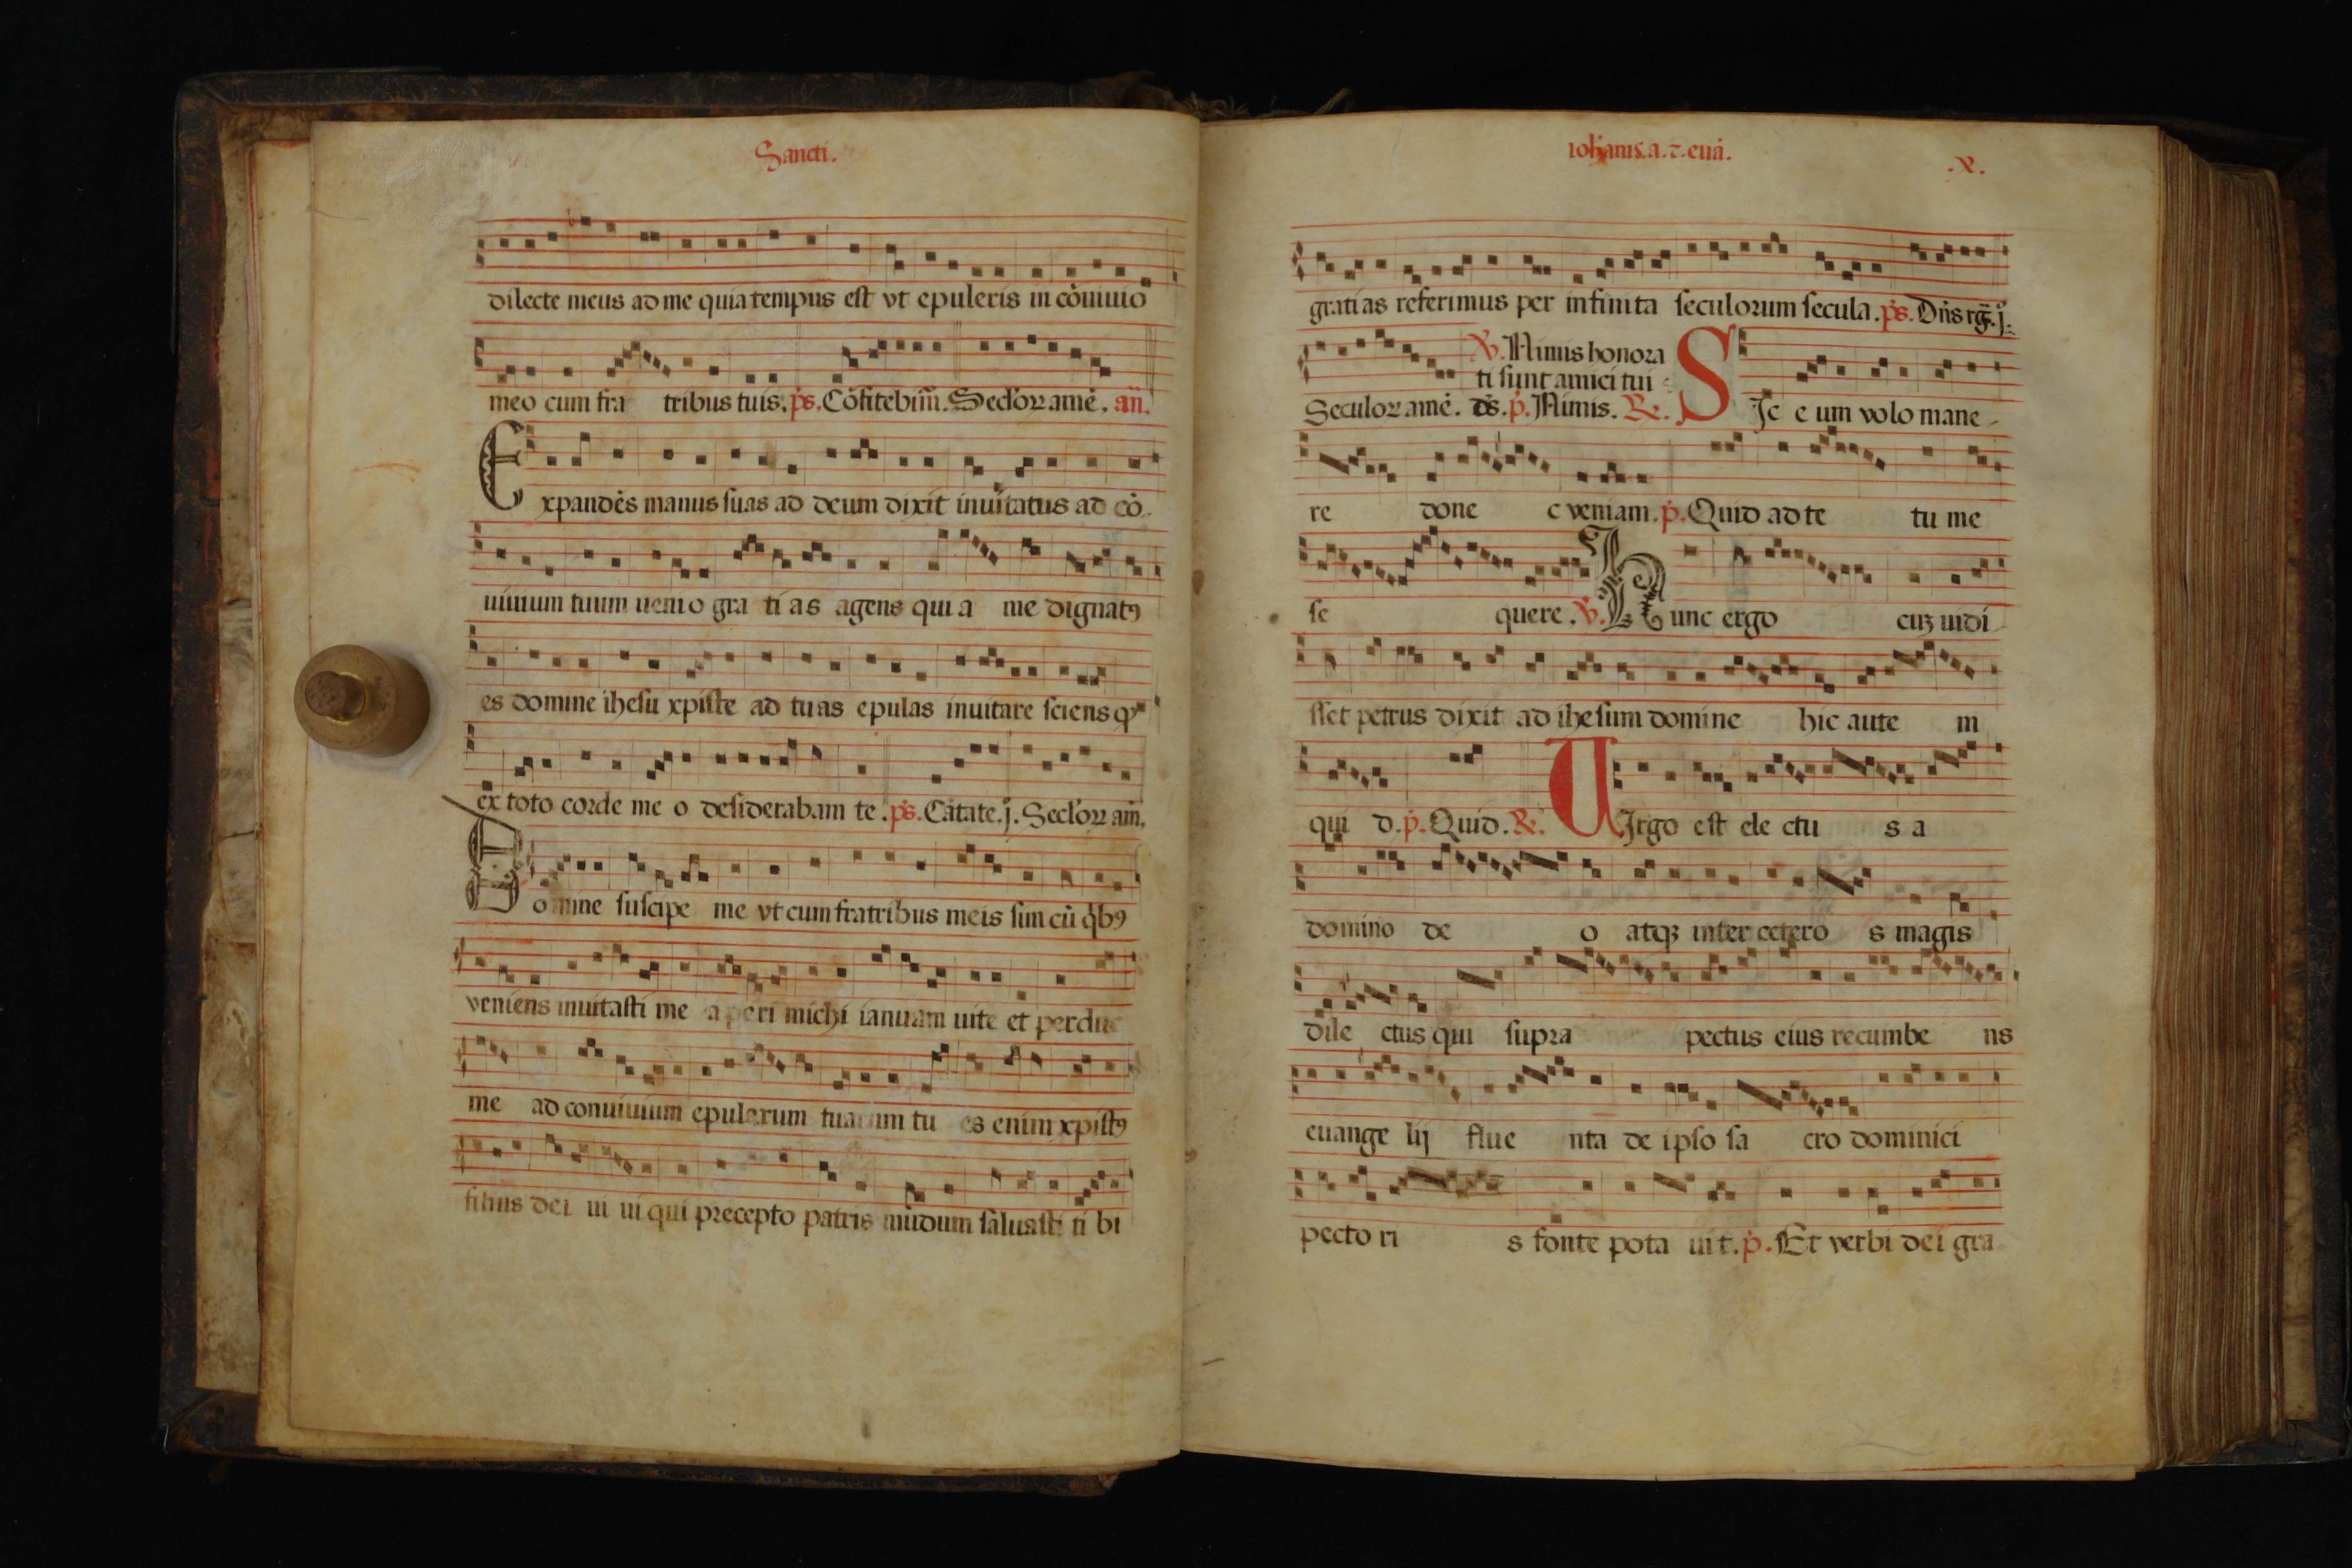 Sancti.
dilecte meus ad me quia tempus est vt epuleris in cōuiuio
meo cum fra tribus tuis. ps. Cōfitebim̄. Sec̄lorꝝ amē. an̄.
Expandēs manus suas ad deum dixit inuitatus ad cō-
uiuium tuum uenio gra ti as agens qui a me dignatꝰ
es domine ihesu xpiste ad tuas epulas inuitare sciens ꝙ
ex toto corde me o desiderabam te. ps. Cātate. j. Sec̄lorꝝ am̄.
Domine suscipe me vt cum fratribus meis sim cū qͥbꝰ
veniens inuitasti me aperi michi ianuam uite et perduc
me ad conuiuium epularum tuarum tu es enim xpistꝰ
filius dei ui ui qui precepto patris mūdum saluasti ti bi
iohānis. a. ⁊. euā.
.X.
gratias referimus per infinita seculorum secula. ps. Dn̄s rḡ. j.
℣. Nimis honora
ti sunt amici tui
Seculorꝝ amē. ds̄. p̄. Nimis. ℟. SIc e um volo mane-
re done c veniam. p̄. Quid ad te tu me
se quere. ℣. Hunc ergo cuꝫ uidi
sset petrus dixit ad ihesum domine hic aute m
qui d. p̄. Quid. ℟. UIrgo est ele ctu s a
domino de o atqꝫ inter cetero s magis
dile ctus qui supra pectus eius recumbe ns
euange lij flue nta de ipso sa cro dominici
pecto ri s fonte pota uit. p̄. Et verbi dei gra